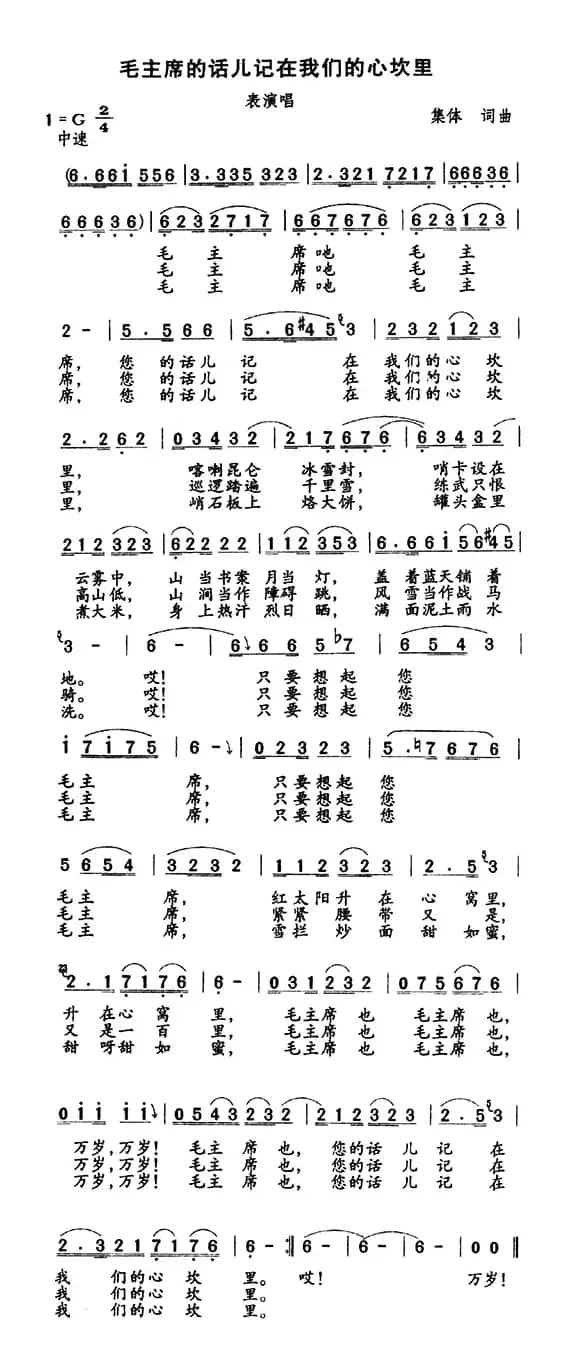 毛主席的话儿记在我们的心坎里
表演唱
1=G 2/4 集体 词曲
中速
(6.661 556 | 3.335 323 | 2.321 7217 | 66636 |
66636) | 6232717 | 667676 | 623123 |
毛 主 席吔 毛 主
毛 主 席吔 毛 主
毛 主 席吔 毛 主
2 - | 5.566 | 5.6#45 3 | 232 123 |
席, 您 的话儿 记 在 我们的心坎
席, 您 的话儿 记 在 我们的心坎
席, 您 的话儿 记 在 我们的心坎
2.262 | 03432 | 217676 | 63432 |
里, 喀喇昆仑 冰雪封, 哨卡设在
里, 巡逻踏遍 千里雪, 练武只恨
里, 峭石板上 烙大饼, 罐头盒里
212 323 | 62222 | 112 353 | 6.66156#45 |
云雾中, 山 当书案 月当 灯, 盖 着蓝天铺着
高山低, 山 涧当作 障碍 跳, 风 雪当作战马
煮大米, 身 上热汗 烈日 晒, 满 面泥土雨水
3 - | 6 - | 6 6 6 5 ♭7 | 6 5 4 3 |
地。 哎! 只要想起 您
骑。 哎! 只要想起 您
洗。 哎! 只要想起 您
1 7175 | 6 - | 02323 | 5.♮7676 |
毛主 席, 只要想起 您
毛主 席, 只要想起 您
毛主 席, 只要想起 您
5654 | 3232 | 112 323 | 2.5 3 |
毛主 席, 红太阳升 在 心 窝里,
毛主 席, 紧紧 腰 带 又 是,
毛主 席, 雪拦 炒 面 甜 如蜜,
2.17176 | 6 - | 031232 | 075676 |
升 在心 窝 里, 毛主席也 毛主席也,
又 是一 百 里, 毛主席也 毛主席也,
甜 呀甜 如 蜜, 毛主席也 毛主席也,
011 11 | 0543232 | 212323 | 2.5 3 |
万岁,万岁! 毛主 席也, 您的话 儿 记 在
万岁,万岁! 毛主 席也, 您的话 儿 记 在
万岁,万岁! 毛主 席也, 您的话 儿 记 在
2.3217176 | 6 - :‖ 6 - | 6 - | 6 - | 00 ‖
我 们的心 坎 里。 哎! 万岁!
我 们的心 坎 里。
我 们的心 坎 里。